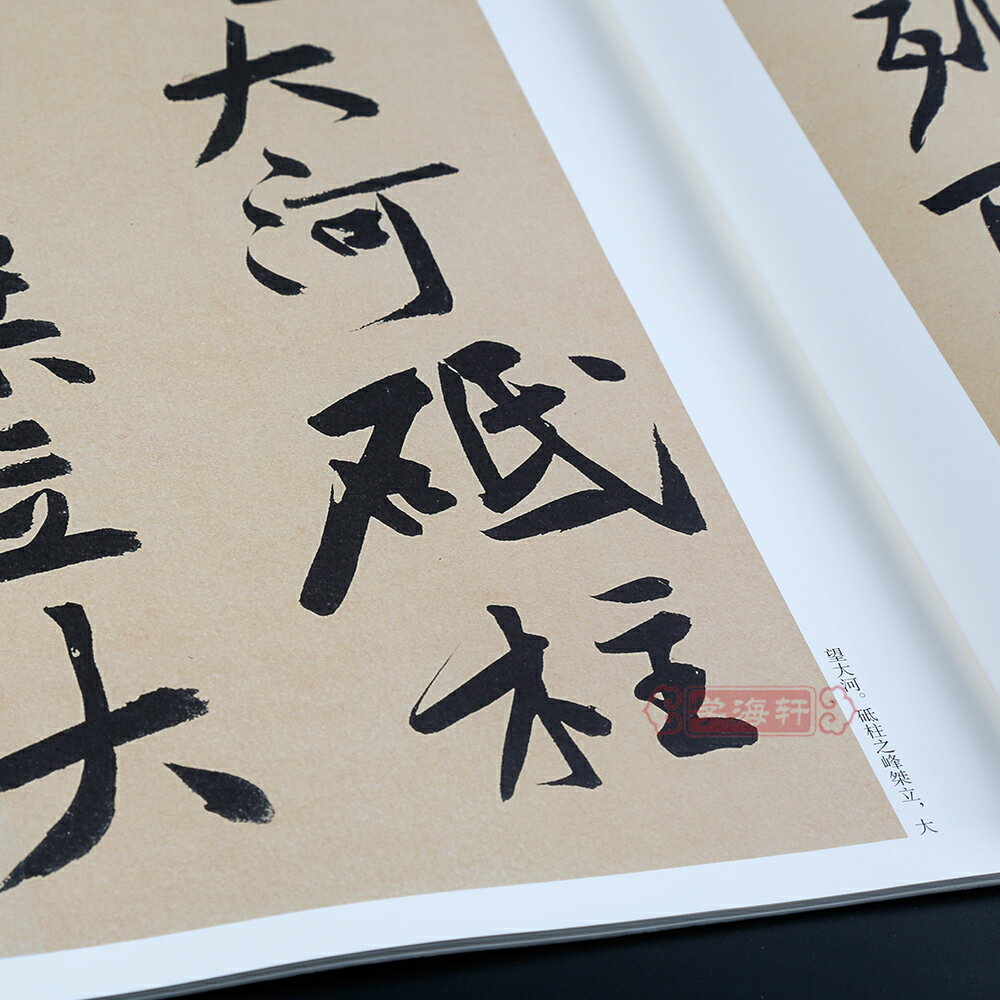 望大河。砥柱之峰桀立，大
大河砥柱
桀立大
学海轩